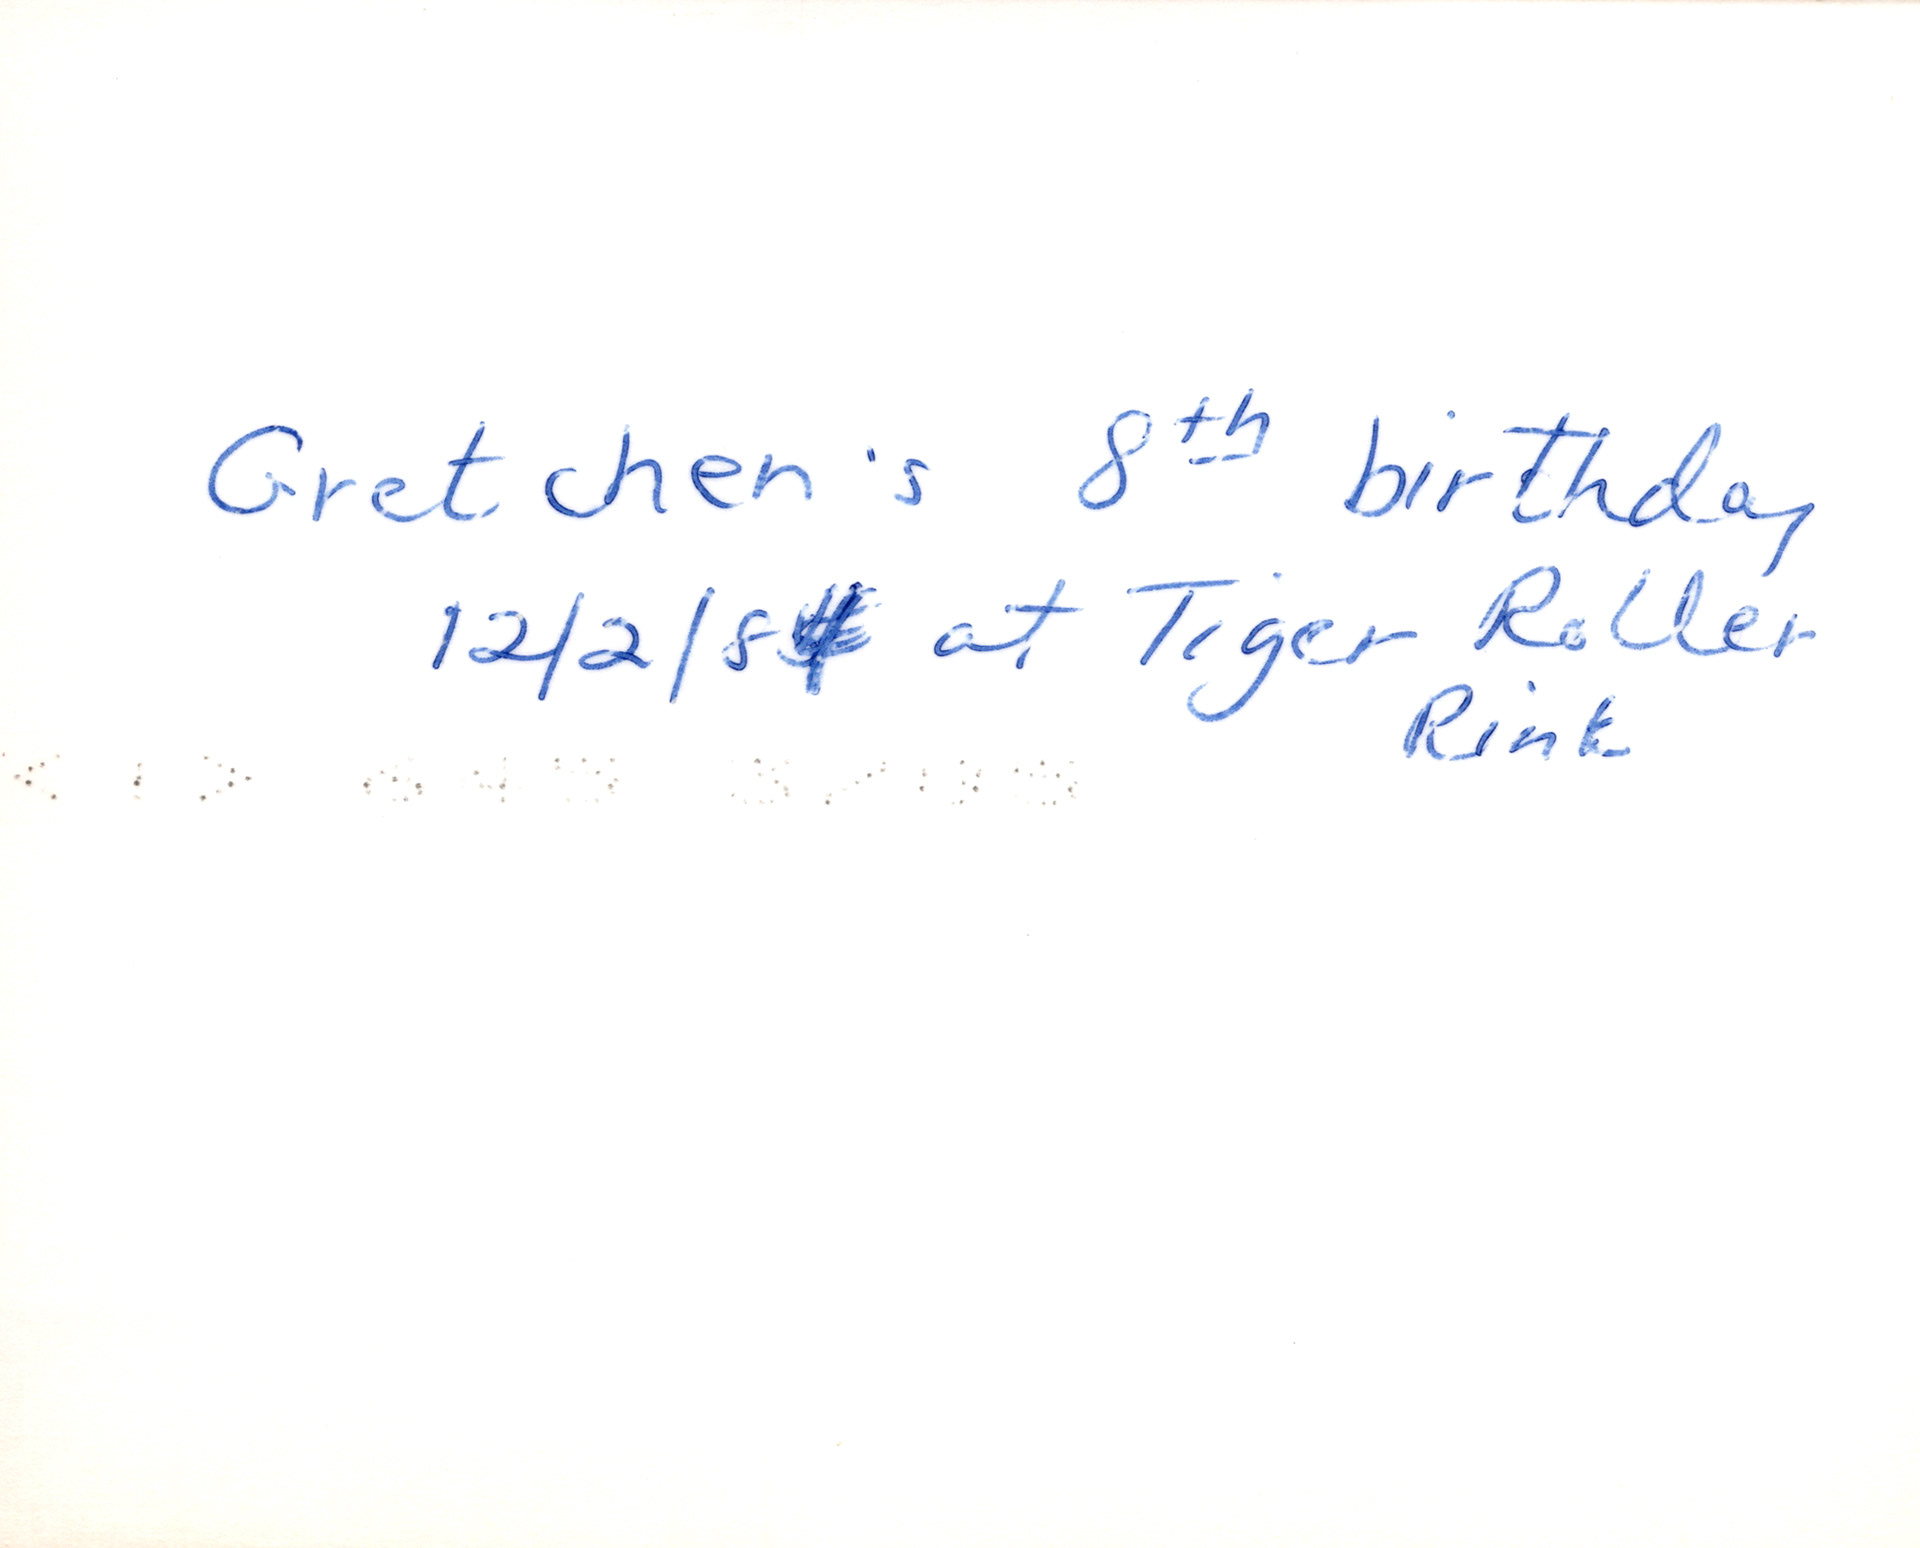 Gretchen's 8th birthday
12/2/84 at Tiger Roller
Rink